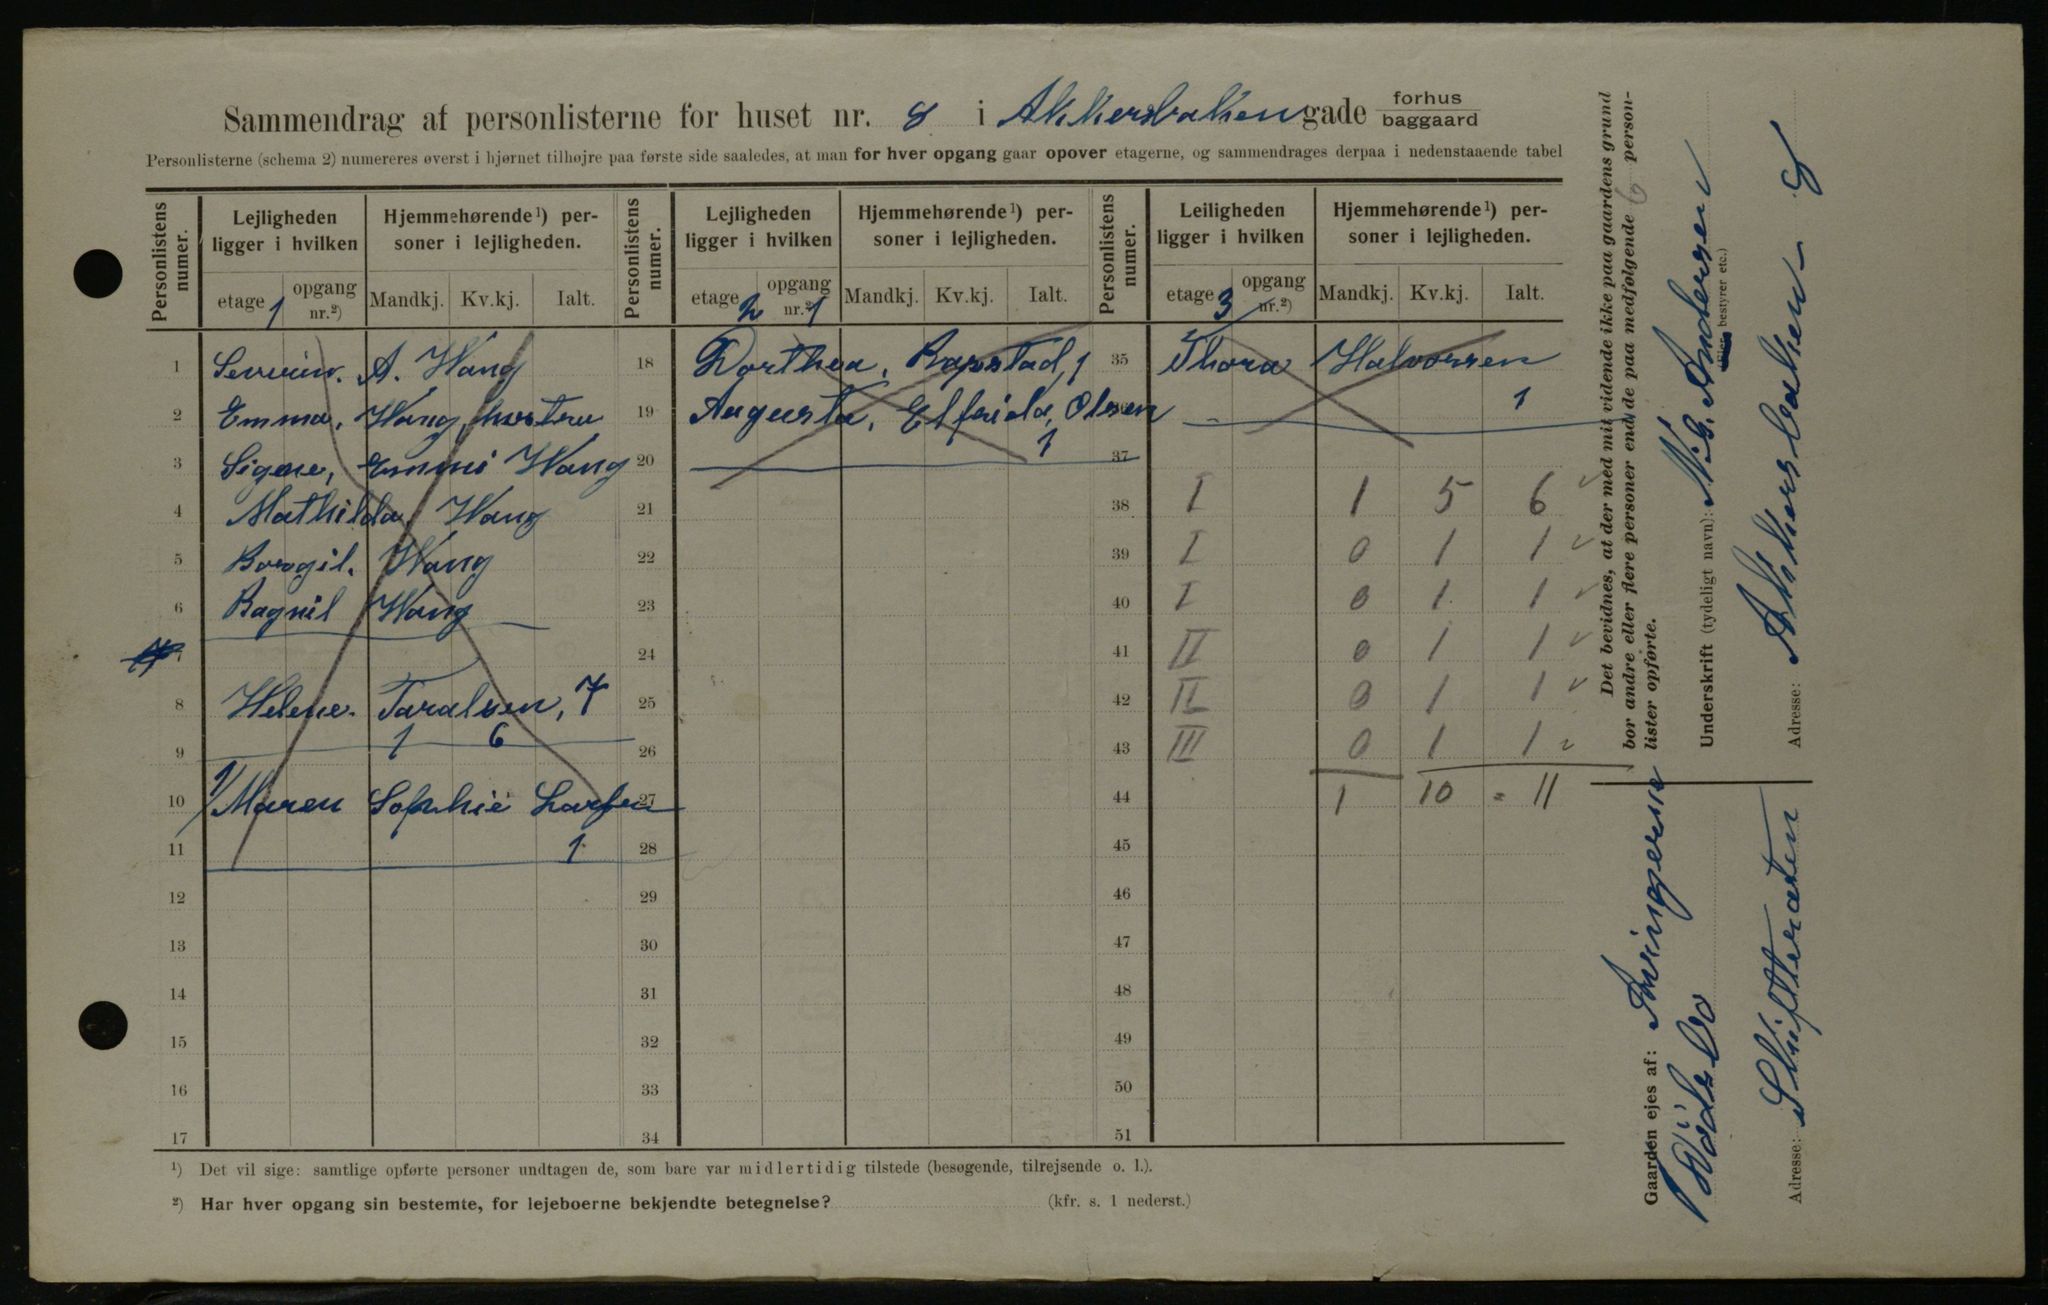 Sammendrag af personlisterne for huset nr. 8 i Akkersbakken gade forhus baggaard
Personlisterne (schema 2) numereres øverst i hjørnet tilhøjre paa første side saaledes, at man for hver opgang gaar opover etagerne, og sammendrages derpaa i nedenstaaende tabel
Personlistens numer.
Lejligheden ligger i hvilken
Hjemmehørende¹) personer i lejligheden.
etage 1 opgang nr.²)
Mandkj. Kv.kj. Ialt.
1 Severin. A. Wang
2 Emma, Wang, hustru
3 Signe, Emmi Wang
4 Mathilda, Wang
5 Borgil. Wang
6 Ragnil Wang
7
8 Helene. Taralsen, 7
9 1 6
10 1/ Maren Sophie Larsen
11 1
12
13
14
15
16
17
Personlistens numer.
Lejligheden ligger i hvilken
Hjemmehørende¹) personer i lejligheden.
etage 2 opgang nr.²) 1
Mandkj. Kv.kj. Ialt.
18 Dorthea, Rapstad, 1
19 Augusta, Elfrida, Olsen
20 1
21
22
23
24
25
26
27
28
29
30
31
32
33
34
Personlistens numer.
Leiligheden ligger i hvilken
Hjemmehørende¹) personer i lejligheden.
etage 3 opgang nr.²)
Mandkj. Kv.kj. Ialt.
35 Thora Halvorsen
1
37
38 I 1 5 6
39 I 0 1 1
40 I 0 1 1
41 II 0 1 1
42 II 0 1 1
43 III 0 1 1
44 1 10 = 11
45
46
47
48
49
50
51
¹) Det vil sige: samtlige opførte personer undtagen de, som bare var midlertidig tilstede (besøgende, tilrejsende o. l.).
²) Har hver opgang sin bestemte, for lejeboerne bekjendte betegnelse? (kfr. s. 1 nederst.)
Det bevidnes, at der med mit vidende ikke paa gaardens grund
bor andre eller flere personer end de paa medfølgende 6 person-
lister opførte.
Underskrift (tydeligt navn): N. G. Andersen
(Ejer, bestyrer etc.)
Adresse: Akkersbakken 8
Gaarden ejes af:
Adresse: Skifteretten